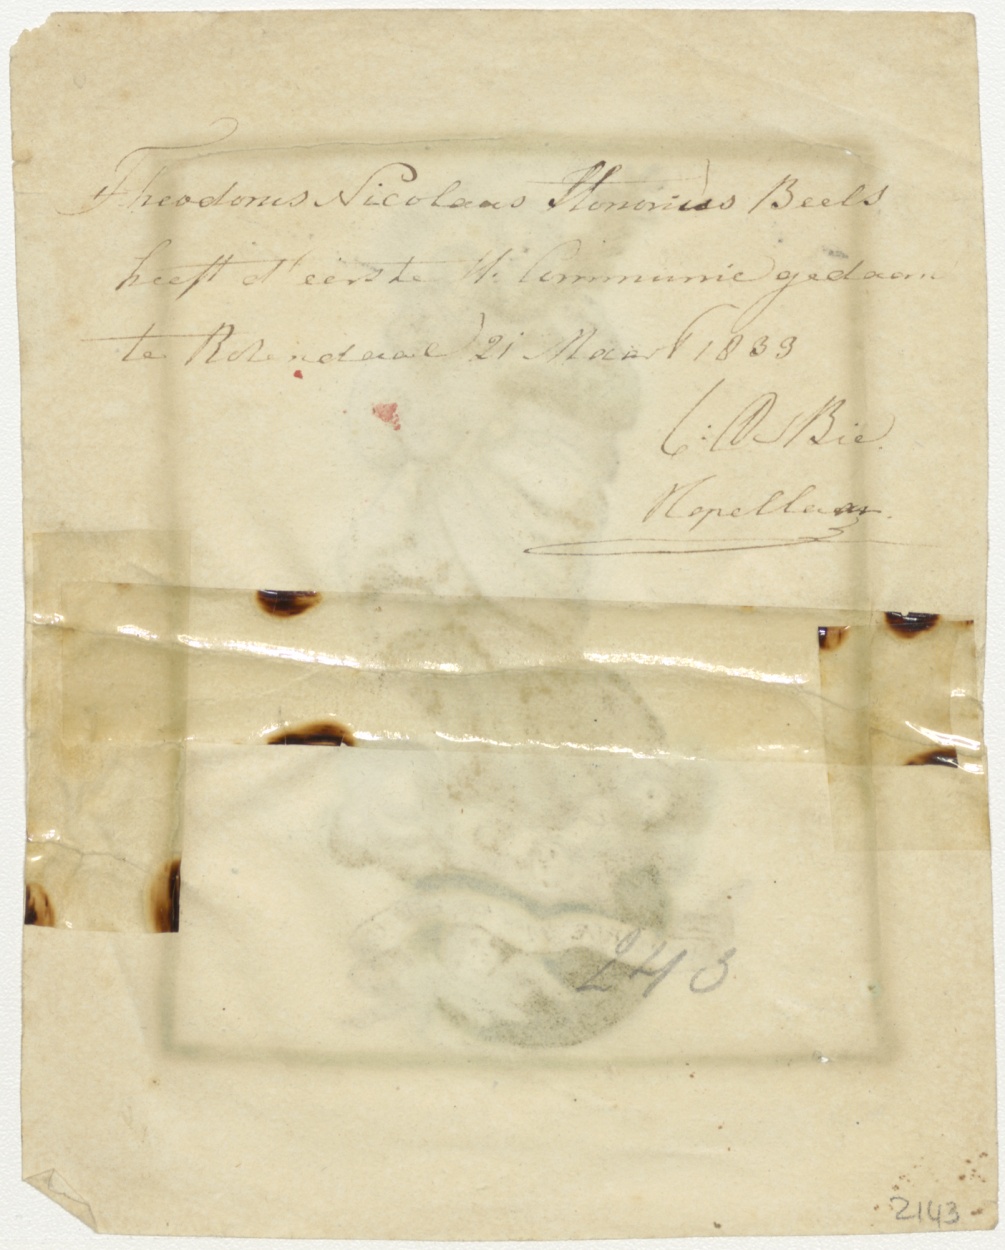 Theodorus Nicolaas Honorius Beels
heeft d' eerste H. Communie gedaan
te Rosendaal 21 Maart 1839
C: D Bie.
Kapellaan.
243
2143